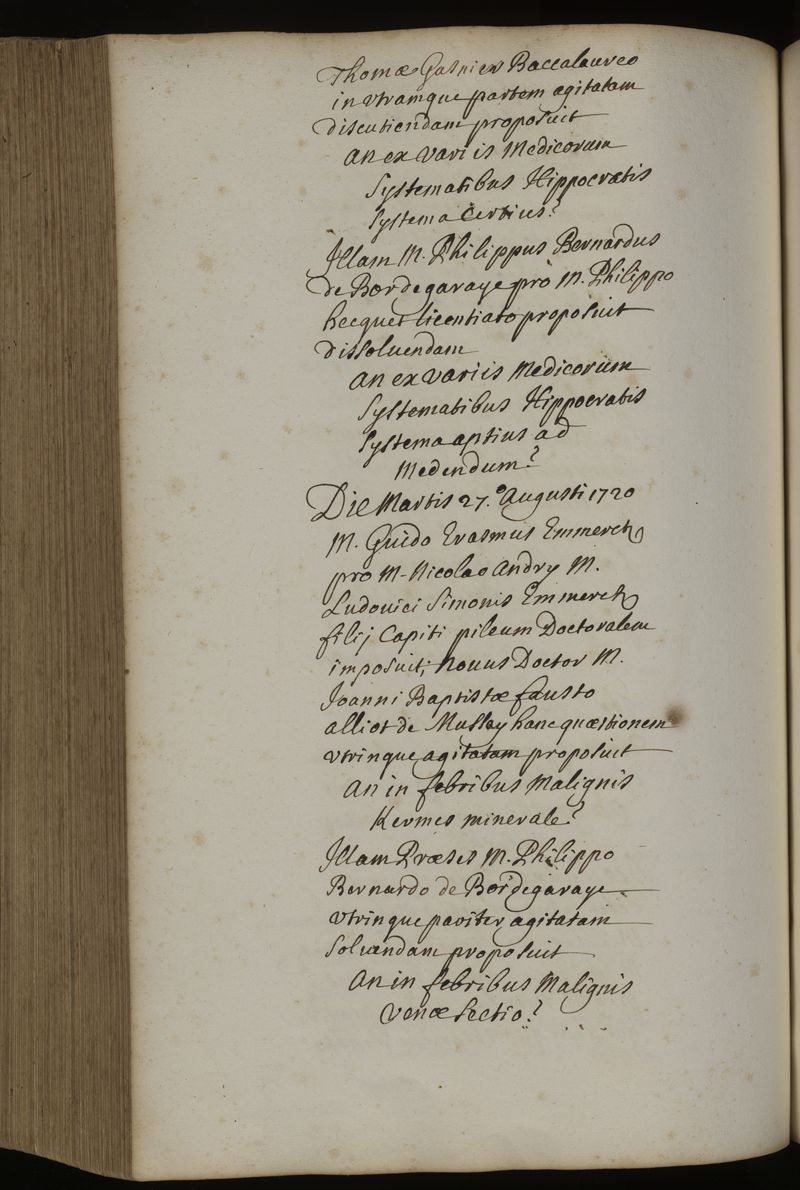 Thomæ Gasnier Baccalaureo
in vtramque partem agitatam
discutiendam proposuit
an ex variis Medicorum
Systematibus Hippocratis
Systema certius?
Illam M. Philippus Bernardus
de Bordegaraye pro M. Philippo
hecquet licentiato proposuit
dissoluendam
an ex variis Medicorum
Systematibus Hippocratis
Systema aptius ad
Medendum?
Die Martis 27.º Augusti 1720
M. Guido Erasmus Emmerez
pro M. Nicolao Andry M.
Ludouici Simonis Emmerez
filij Capiti pileum Doctoralem
imposuit; nouus Doctor M.
Joanni Baptistæ fausto
alliot de Mussay hanc quæstionem
vtrinque agitatam proposuit
an in febribus Malignis
Kermes minerale?
Illam Præses M. Philippo
Bernardo de Bordegaraye
vtrinque pariter agitatam
Soluendam proposuit
an in febribus Malignis
venæ sectio?